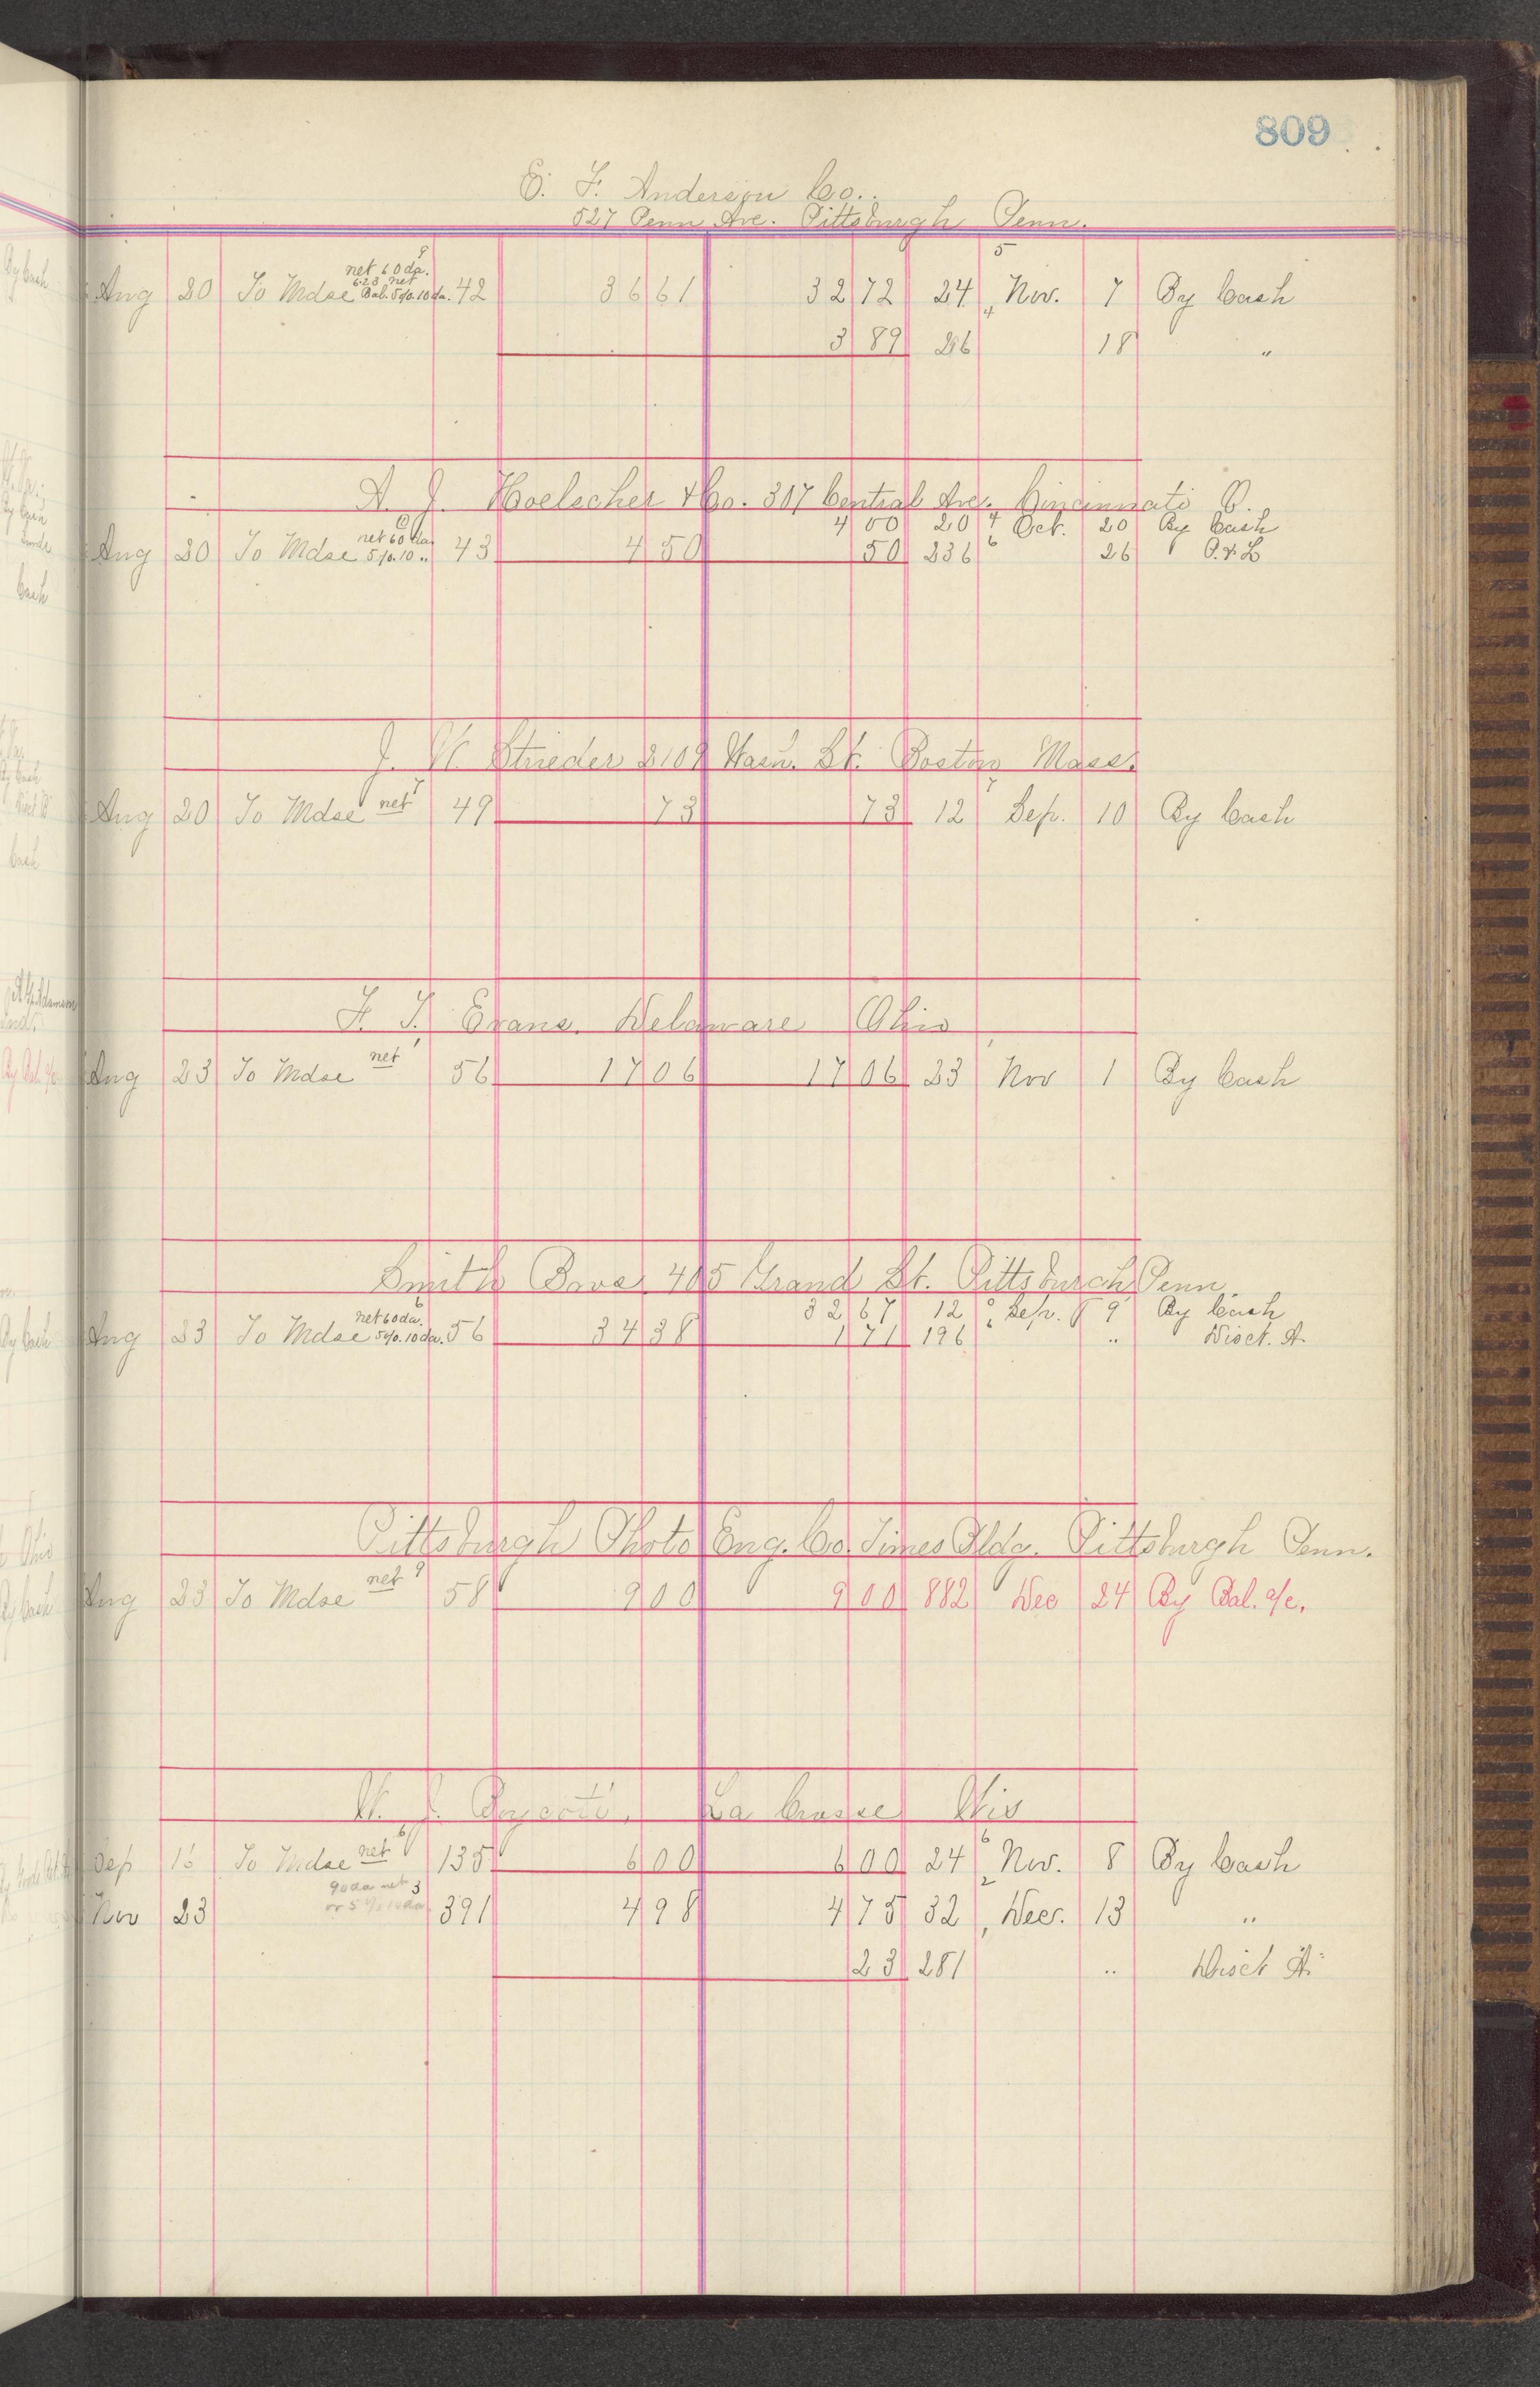 809
E. F. Anderson Co.
527 Penn Ave. Pittsburgh Penn.
9 5
net 60 da.
6.23 net
Aug 20 To Mdse Bal. 5%. 10 da. 42 36 61 32 72 24 4 Nov. 7 By Cash
3 89 26 18 "
A. J. Hoelscher & Co. 307 Central Ave. Cincinnati O.
net 60 da 4 00 20 4 Oct. 20 By Cash
Aug 20 To Mdse 5%. 10 .. 43 4 50 50 236 6 26 P. & L
J. W. Strieder 3109 Wash. St. Boston Mass.
Aug 20 To Mdse net 7 49 73 73 12 7 Sep. 10 By Cash
F. T. Evans. Delaware Ohio
Aug 23 To Mdse net 1 56 17 06 17 06 23 1 Nov 1 By Cash
Smith Bros. 405 Grand St. Pittsburgh Penn.
net 60 da. 6 32 67 12 Sep. 9 By Cash
Aug 23 To Mdse 5%. 10 da. 56 34 38 1 71 196 6 .. Disct. A.
Pittsburgh Photo Eng. Co. Times Bldg. Pittsburgh Penn.
Aug 23 To Mdse net 9 58 9 00 9 00 882 Dec 24 By Bal. a/c.
W. J. La Crosse Wis
Sep 16 To Mdse net 6 135 6 00 6 00 24 6 Nov. 8 By Cash
90 da net 3 2
or 5% 10 da
Nov 23 391 4 98 4 75 32 , Dec. 13 "
23 281 .. Disct A.